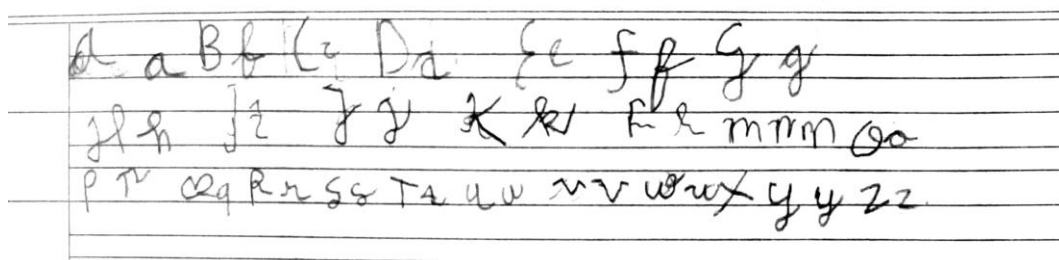 a a B b C c D d E e f f G g
H h I i J j K k L l m n m O o
P p Q q R r S s T t u u v v w w X y y Z z